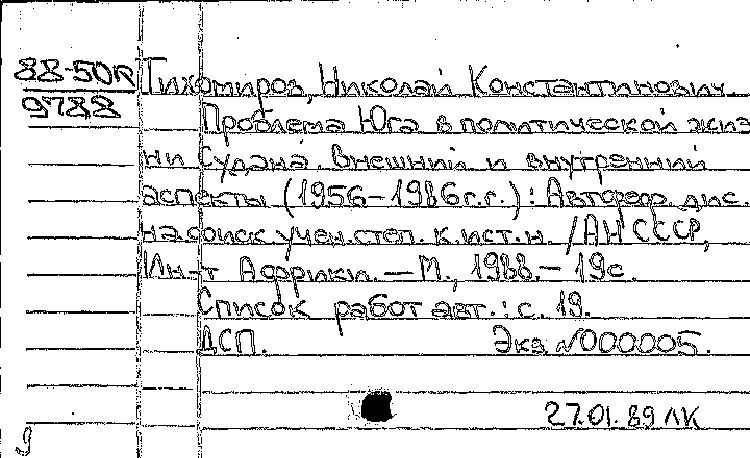 88-50R Тихомиров, Николай Константинович.
9788 Проблема Юга в политической жиз
ни Судана. Внешний и внутренний
аспекты (1956-1986г.г.): Автореф. дис.
на соиск. учен. степ. к.ист.н. /АН СССР,
Ин-т Африки. — М., 1988. — 19с.
Список работ авт.: с. 19.
ДСП. Экз №000005.
27.01.89 ЛК
9